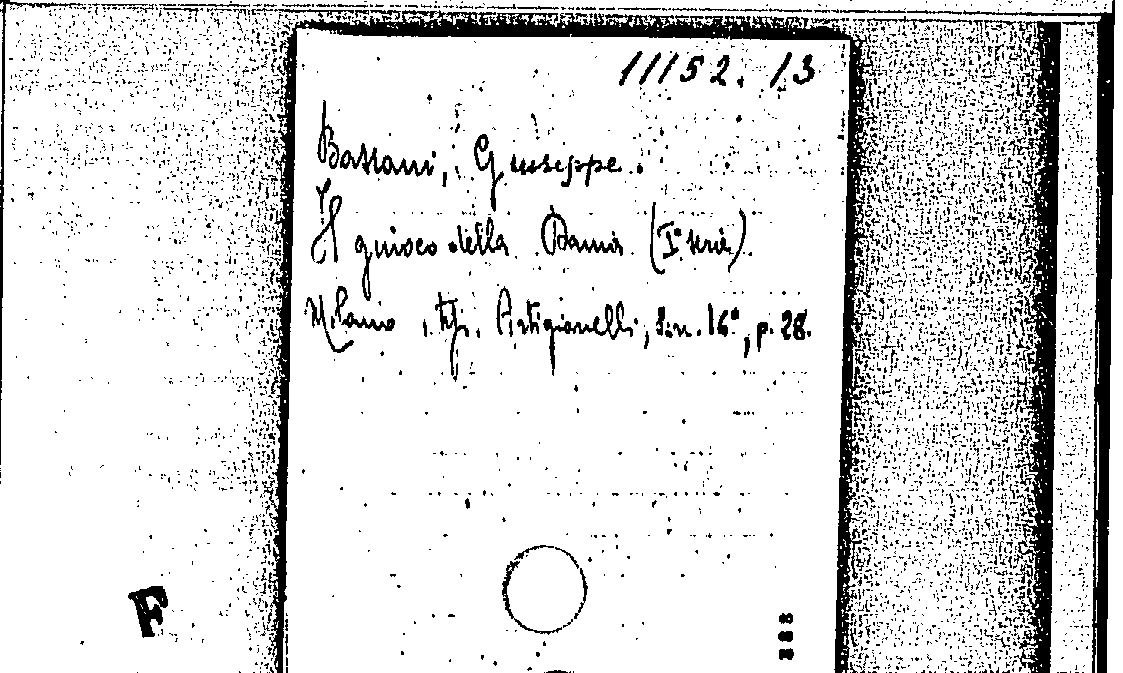 11152. 13
Bassani, Giuseppe.
Il giuoco della Dama (Iª serie).
Milano, tip. Artigianelli, s.n. 16°, p. 28.
F